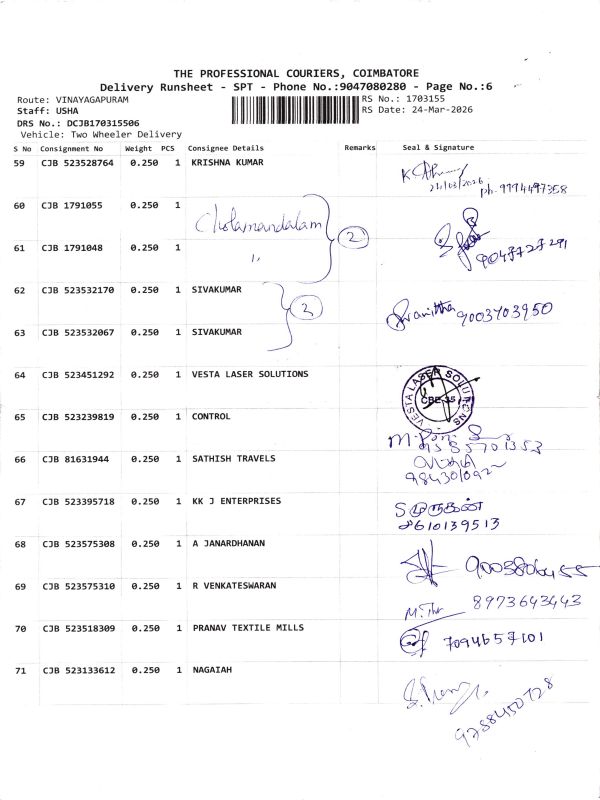 THE PROFESSIONAL COURIERS, COIMBATORE
Delivery Runsheet - SPT - Phone No.:9047080280 - Page No.:6
Route: VINAYAGAPURAM RS No.: 1703155
Staff: USHA RS Date: 24-Mar-2026
DRS No.: DCJB170315506
Vehicle: Two Wheeler Delivery
S No Consignment No Weight PCS Consignee Details Remarks Seal & Signature
59 CJB 523528764 0.250 1 KRISHNA KUMAR
24/03/2026 ph. 9194497358
60 CJB 1791055 0.250 1
Cholamandalam
2
61 CJB 1791048 0.250 1 "
9047727291
62 CJB 523532170 0.250 1 SIVAKUMAR
2
9003703950
63 CJB 523532067 0.250 1 SIVAKUMAR
64 CJB 523451292 0.250 1 VESTA LASER SOLUTIONS
VESTA LASER SOLUTIONS
65 CJB 523239819 0.250 1 CONTROL
66 CJB 81631944 0.250 1 SATHISH TRAVELS
67 CJB 523395718 0.250 1 KK J ENTERPRISES
S முருகன்
68 CJB 523575308 0.250 1 A JANARDHANAN
69 CJB 523575310 0.250 1 R VENKATESWARAN
8973643443
70 CJB 523518309 0.250 1 PRANAV TEXTILE MILLS
7094657101
71 CJB 523133612 0.250 1 NAGAIAH
9788450728